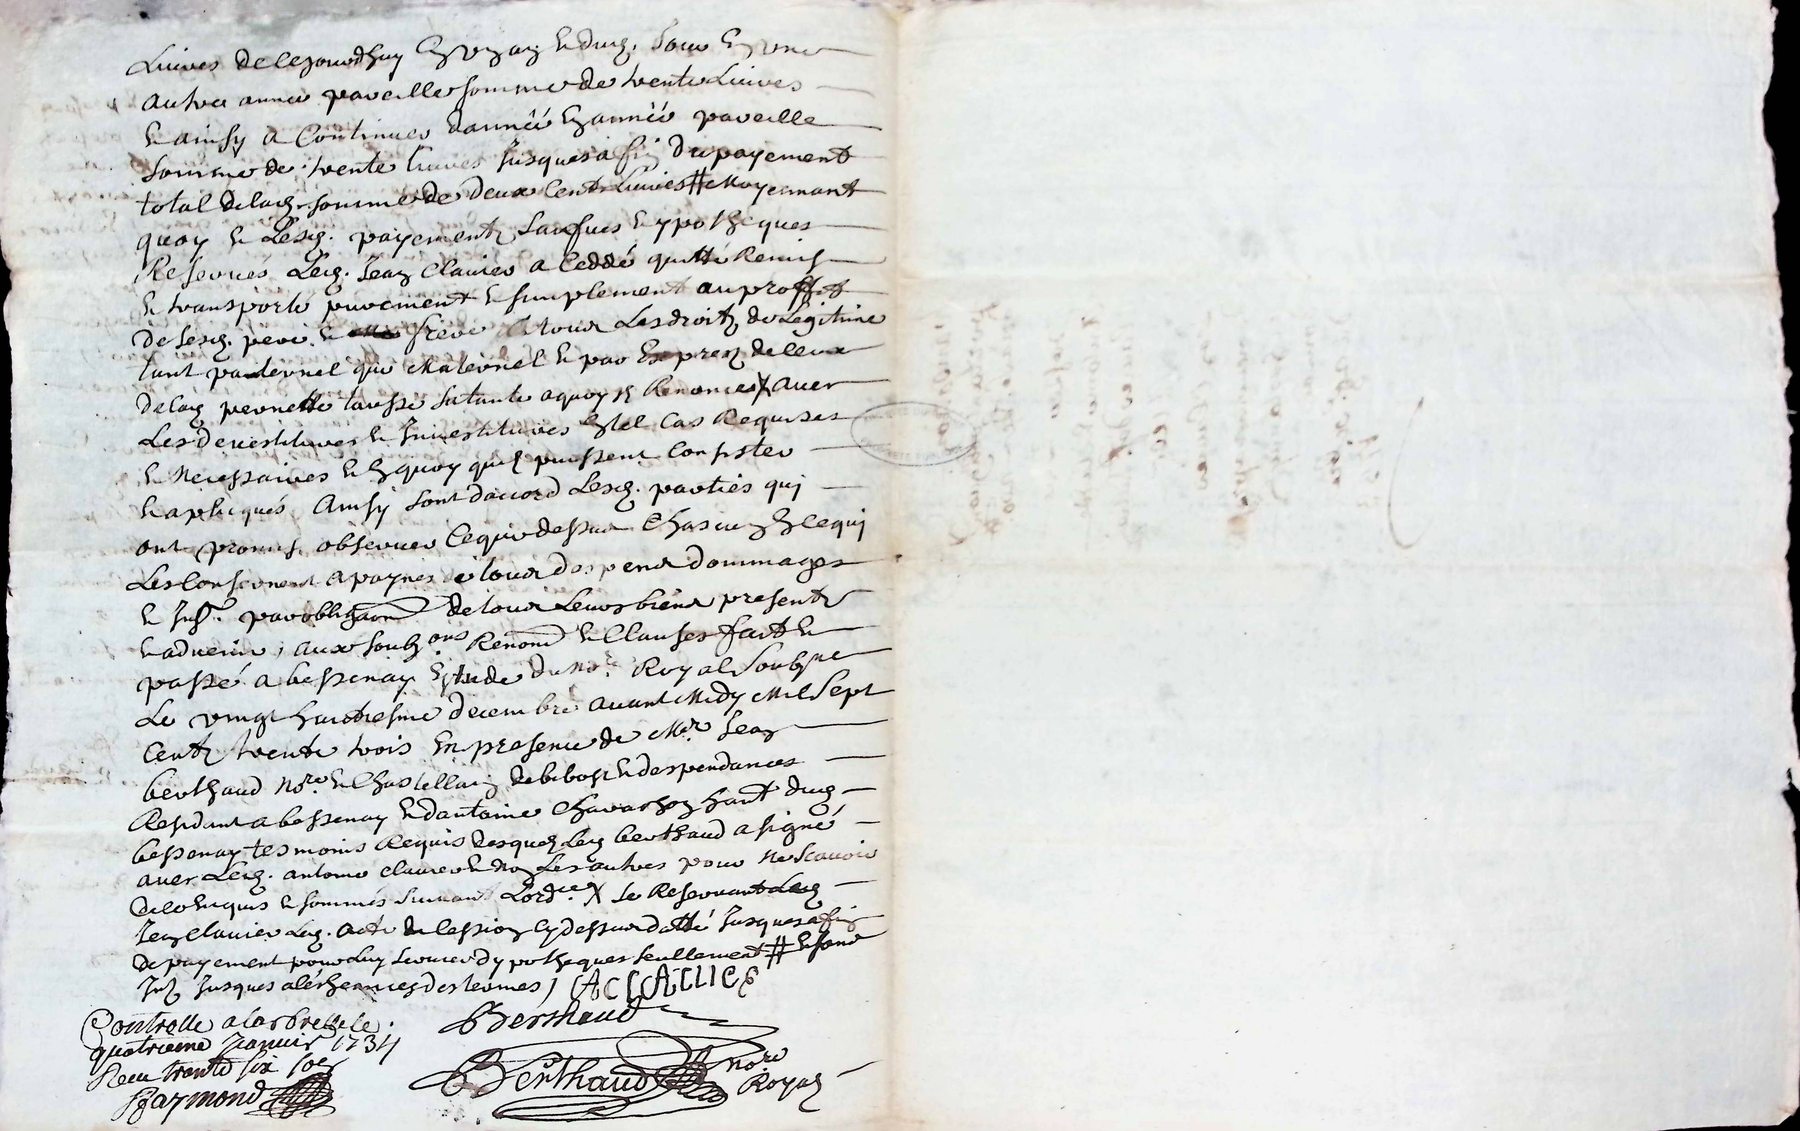 Livres de cejourdhuy En Un an & dud. Jour En Une
autre année pareille somme de trente Livres
& ainsy a Continuer dannéé En annéé pareille
somme de trente livres Jusques a fin du payement
total de lad. somme de Deux Cents Livres # Moyennant
quoy & Lesd. payements sausues & ypotheques
Reservés Led. Jean Clavier a Ceddé quitté Remis
& transporté purement & simplement au proffit
De sesd. pere & frere & tous Les droits de Legitime
tant paternel que Maternel & par Expres de ceux
De lad. pernette sa tante a quoy Il Renonce X aver
Les devestitures & Investitures En tel Cas Requises
& Necessaires & En quoy quils puissent Consister
& apliqués, Ainsy sont daccord Lesd. parties qui
ont promis observer Ce que dessus Chascun En Ce qui
Les Conserne a paynes de tous despens Dommages
& Ints. par obligaon De tous Leurs biens presents
& advenir, aux soubons Renons & Clauses fait &
passé a bessenay Estude du Nore. Royal Soubsne
Le vingt huictiesme decembre avant Midy Mil Sept
Cents trente trois En presence de Mre. Jean
berthaud Nore. & Chastellain de bibost & despendances
Residant a bessenay & dantoine Chavasson habt. dud.
bessenay tesmoins Requis desquels Led. berthaud a signé
aver Led. antoine Clavier & Non Les autres pour Ne Scavoir
De ce Enquis & sommés suivant Lordce. X se Reservant
Jean Clavier Led. acte de Cession Cy dessus datté Jusques a fin
de payement pour Luy servir dypotheques seullement # & sans
Ints Jusques a léchéance des termes,
Berthaud
Controllé a larbresle le
quatrieme Janvier 1734
Receu trente six sos
Raymond
Berthaud
Nore
Royal